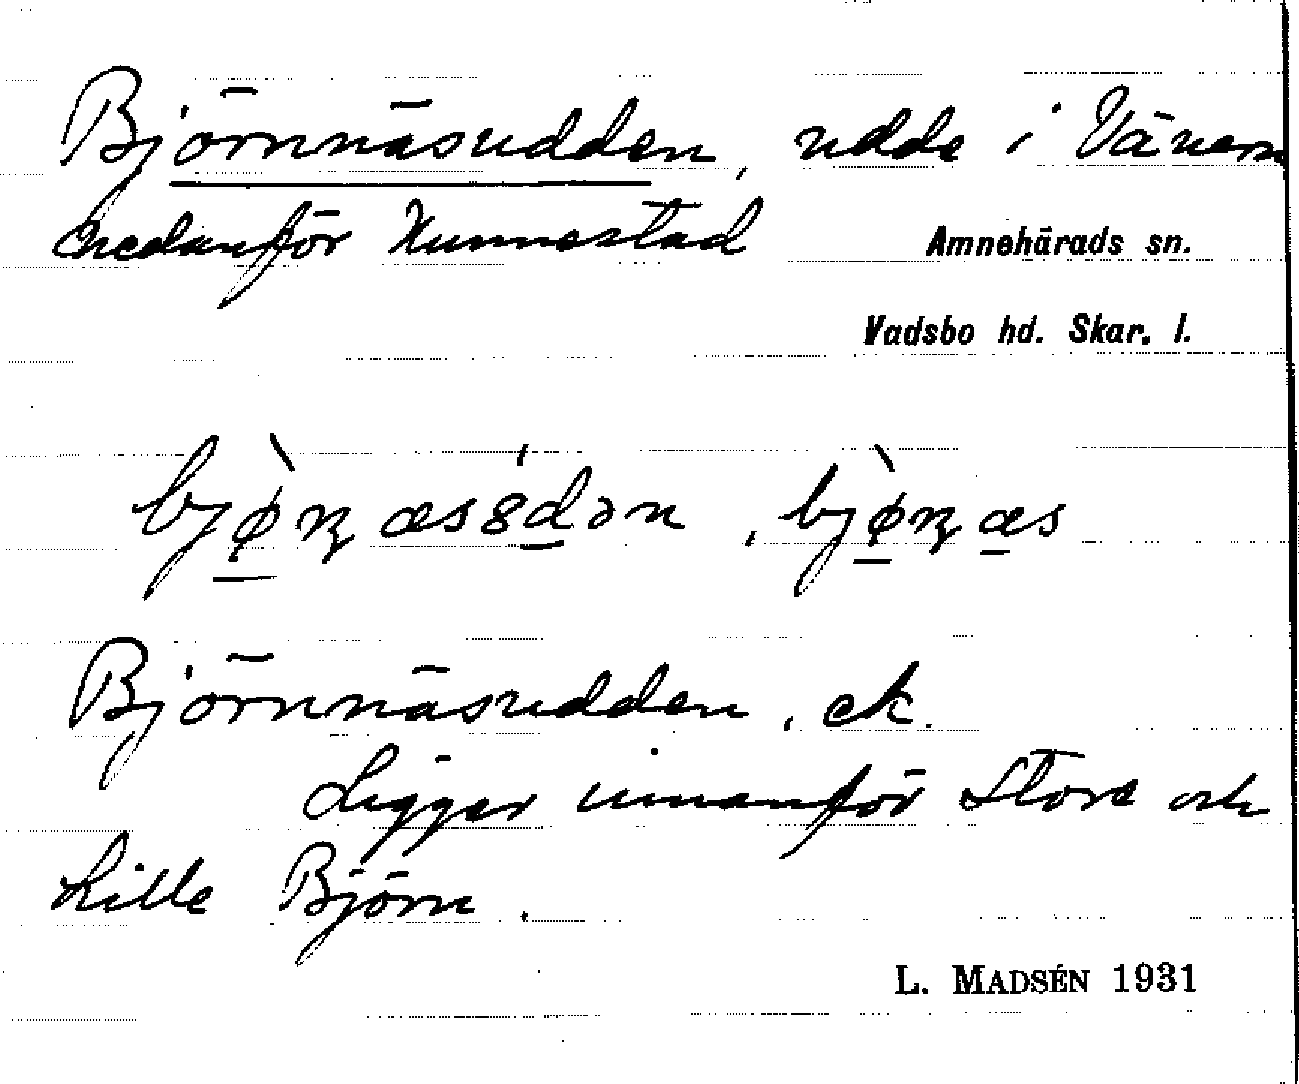 Björnnäsudden, udde i Vänern
nedanför Hunnestad
Amnehärads sn.
Vadsbo hd. Skar. l.
Björnnäsudden, ek.
Ligger innanför Stora och
Lilla Björn.
L. MADSÉN 1931